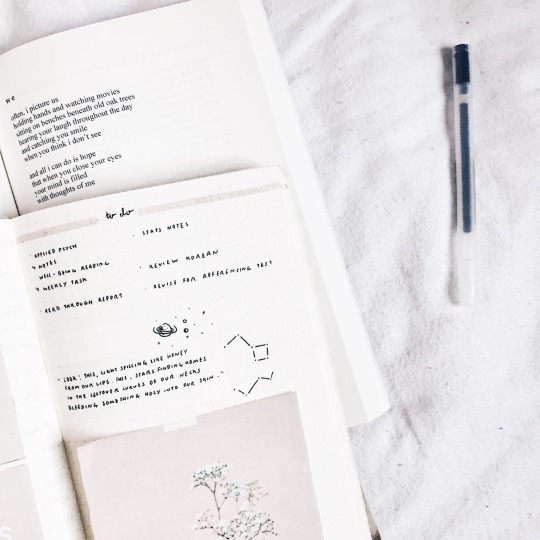 we
often, i picture us
holding hands and watching movies
sitting on benches beneath old oak trees
hearing your laugh throughout the day
and catching you smile
when you think i don't see
and all i can do is hope
that when you close your eyes
your mind is filled
with thoughts of me
to do
· APPLIED PSYCH
↳ NOTES
WELL-BEING READING
↳ WEEKLY TASK
· READ THROUGH REPORT
· STATS NOTES
· REVIEW KOREAN
· REVISE FOR REFERENCING TEST
"LOOK: THIS, LIGHT SPILLING LIKE HONEY
FROM OUR LIPS. THIS, STARS FINDING HOMES
IN THE LEFTOVER CURVES OF OUR NECKS
BLEEDING SOMETHING HOLY INTO OUR SKIN."